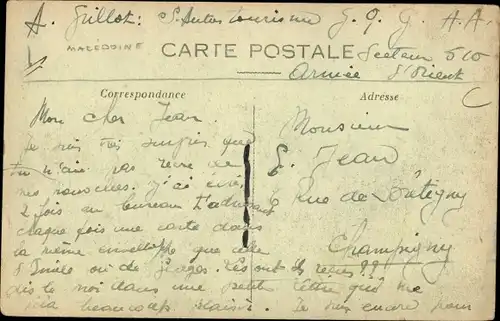 A. Grillot: S. Autos tourisme G. Q. G. A.A.
MACÉDOINE
CARTE POSTALE
Secteur 510
Armée d'Orient
Correspondance
Adresse
Mon cher Jean.
Je suis très surpris que
tu n'aie pas reçu de
mes nouvelles. J'ai écrit
2 fois au bureau
chaque fois une carte dans
la même enveloppe que celle
d'Emile ou de Georges. Les ont ils reçues??
dis le moi dans une petite lettre qui me
fera beaucoup plaisir. Je suis encore pour
Monsieur
E. Jean
6 Rue de
Champigny